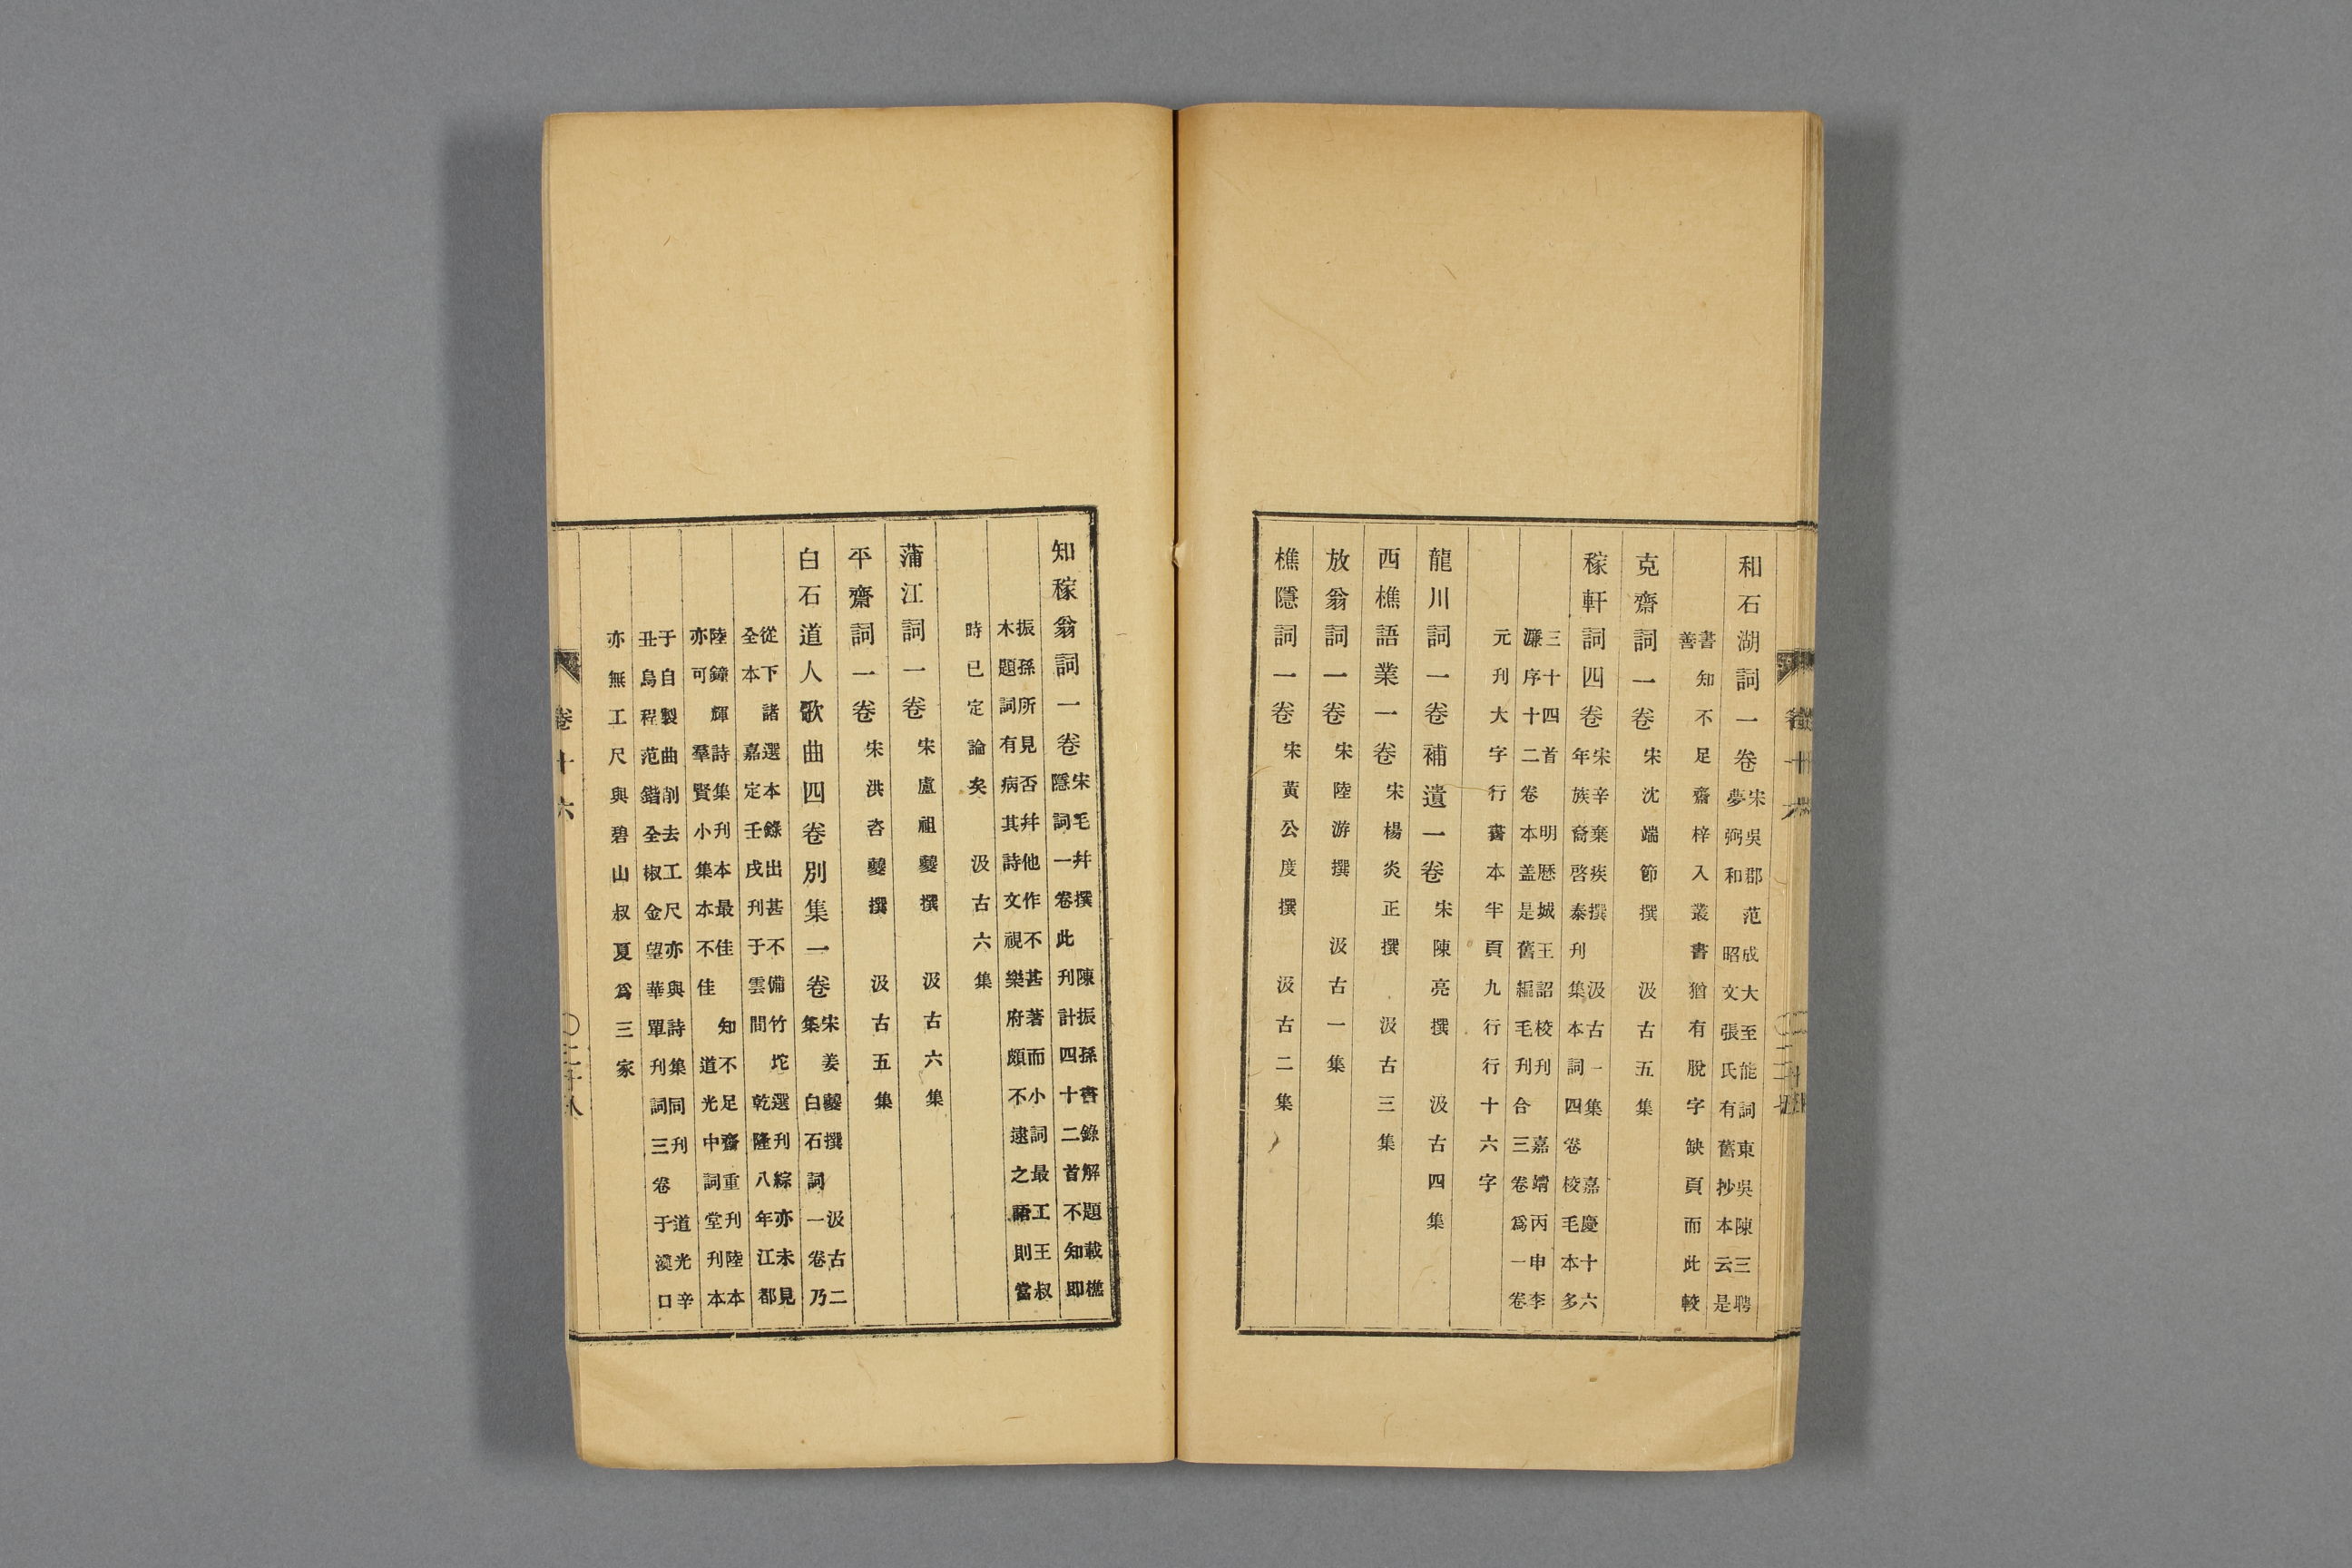 和石湖詞一卷
宋吳郡范成大至能詞東吳陳三聘
夢弼和 昭文張氏有舊抄本云是
書知不足齋梓入叢書猶有脫字缺頁而此較
善
克齋詞一卷 宋沈端節撰 汲古五集
稼軒詞四卷
宋辛棄疾撰 汲古一集 嘉慶十六
年族裔啓泰刊集本詞四卷校毛本多
三十四首 明歷城王詔校刊 嘉靖丙申李
濂序十二卷本盖是舊編毛刊合三卷爲一卷
元刊大字行書本半頁九行行十六字
龍川詞一卷補遺一卷 宋陳亮撰 汲古四集
西樵語業一卷 宋楊炎正撰 汲古三集
放翁詞一卷 宋陸游撰 汲古一集
樵隱詞一卷 宋黃公度撰 汲古二集
知稼翁詞一卷
宋毛幵撰 陳振孫書錄解題載樵
隱詞一卷此刊計四十二首不知即
振孫所見否幵他作不甚著而小詞最工王叔
木題詞有病其詩文視樂府頗不逮之語則當
時已定論矣 汲古六集
蒲江詞一卷 宋盧祖夔撰 汲古六集
平齋詞一卷 宋洪咨夔撰 汲古五集
白石道人歌曲四卷別集一卷
宋姜夔撰 汲古二
集 白石詞一卷乃
從下諸選本錄出甚不備竹垞選刊綜亦未見
全本 嘉定壬戌刊于雲間 乾隆八年江都
陸鐘輝詩集刊本最佳 知不足齋重刊陸本
亦可 羣賢小集本不佳 道光中詞堂刊本
于自製曲削去工尺亦與詩集同刊 道光辛
丑烏程范鍇全椒金望華單刊詞三卷于漢口
亦無工尺與碧山叔夏爲三家
卷十六